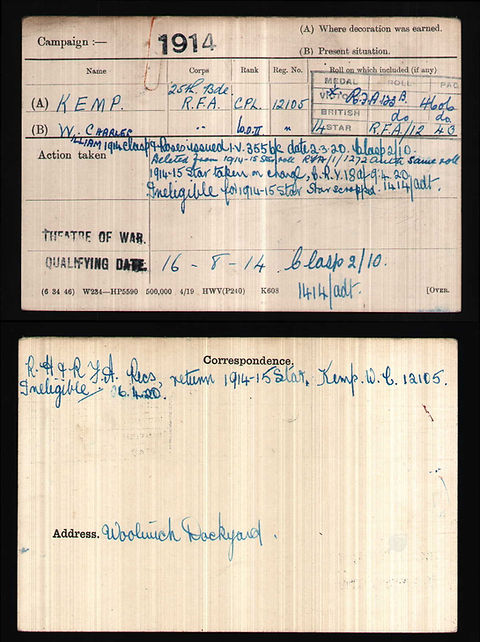 (A) Where decoration was earned.
Campaign :— 1914
(B) Present situation.
Name Corps Rank Reg. No. Roll on which included (if any)
MEDAL ROLL PAGE
25th Bde.
(A) KEMP. R.F.A. CPL. 12105 VICTORY R.F.A. 122 B. 4606
BRITISH do. do.
(B) W. CHARLES " " 14 STAR R.F.A./12 43
WILLIAM
Action taken 1914 Clasp & Roses issued I.V. 355 date 2.3.20. Clasp 2/10.
Deleted from 1914-15 Star roll same roll
1914-15 Star taken on charge, C.R.V. 18 9.4.20
Ineligible for 1914-15 Star Star scrapped. 1414/adt.
THEATRE OF WAR.
QUALIFYING DATE. 16 - 8 - 14. Clasp 2/10.
1414/adt.
(6 34 46) W234—HP5590 500,000 4/19 HWV(P240) K608 [OVER.
Correspondence.
R.H & R.F.A. Recs, return 1914-15 Star, Kemp. W. C. 12105.
Ineligible 26.4.20.
Address. Woolwich Dockyard.